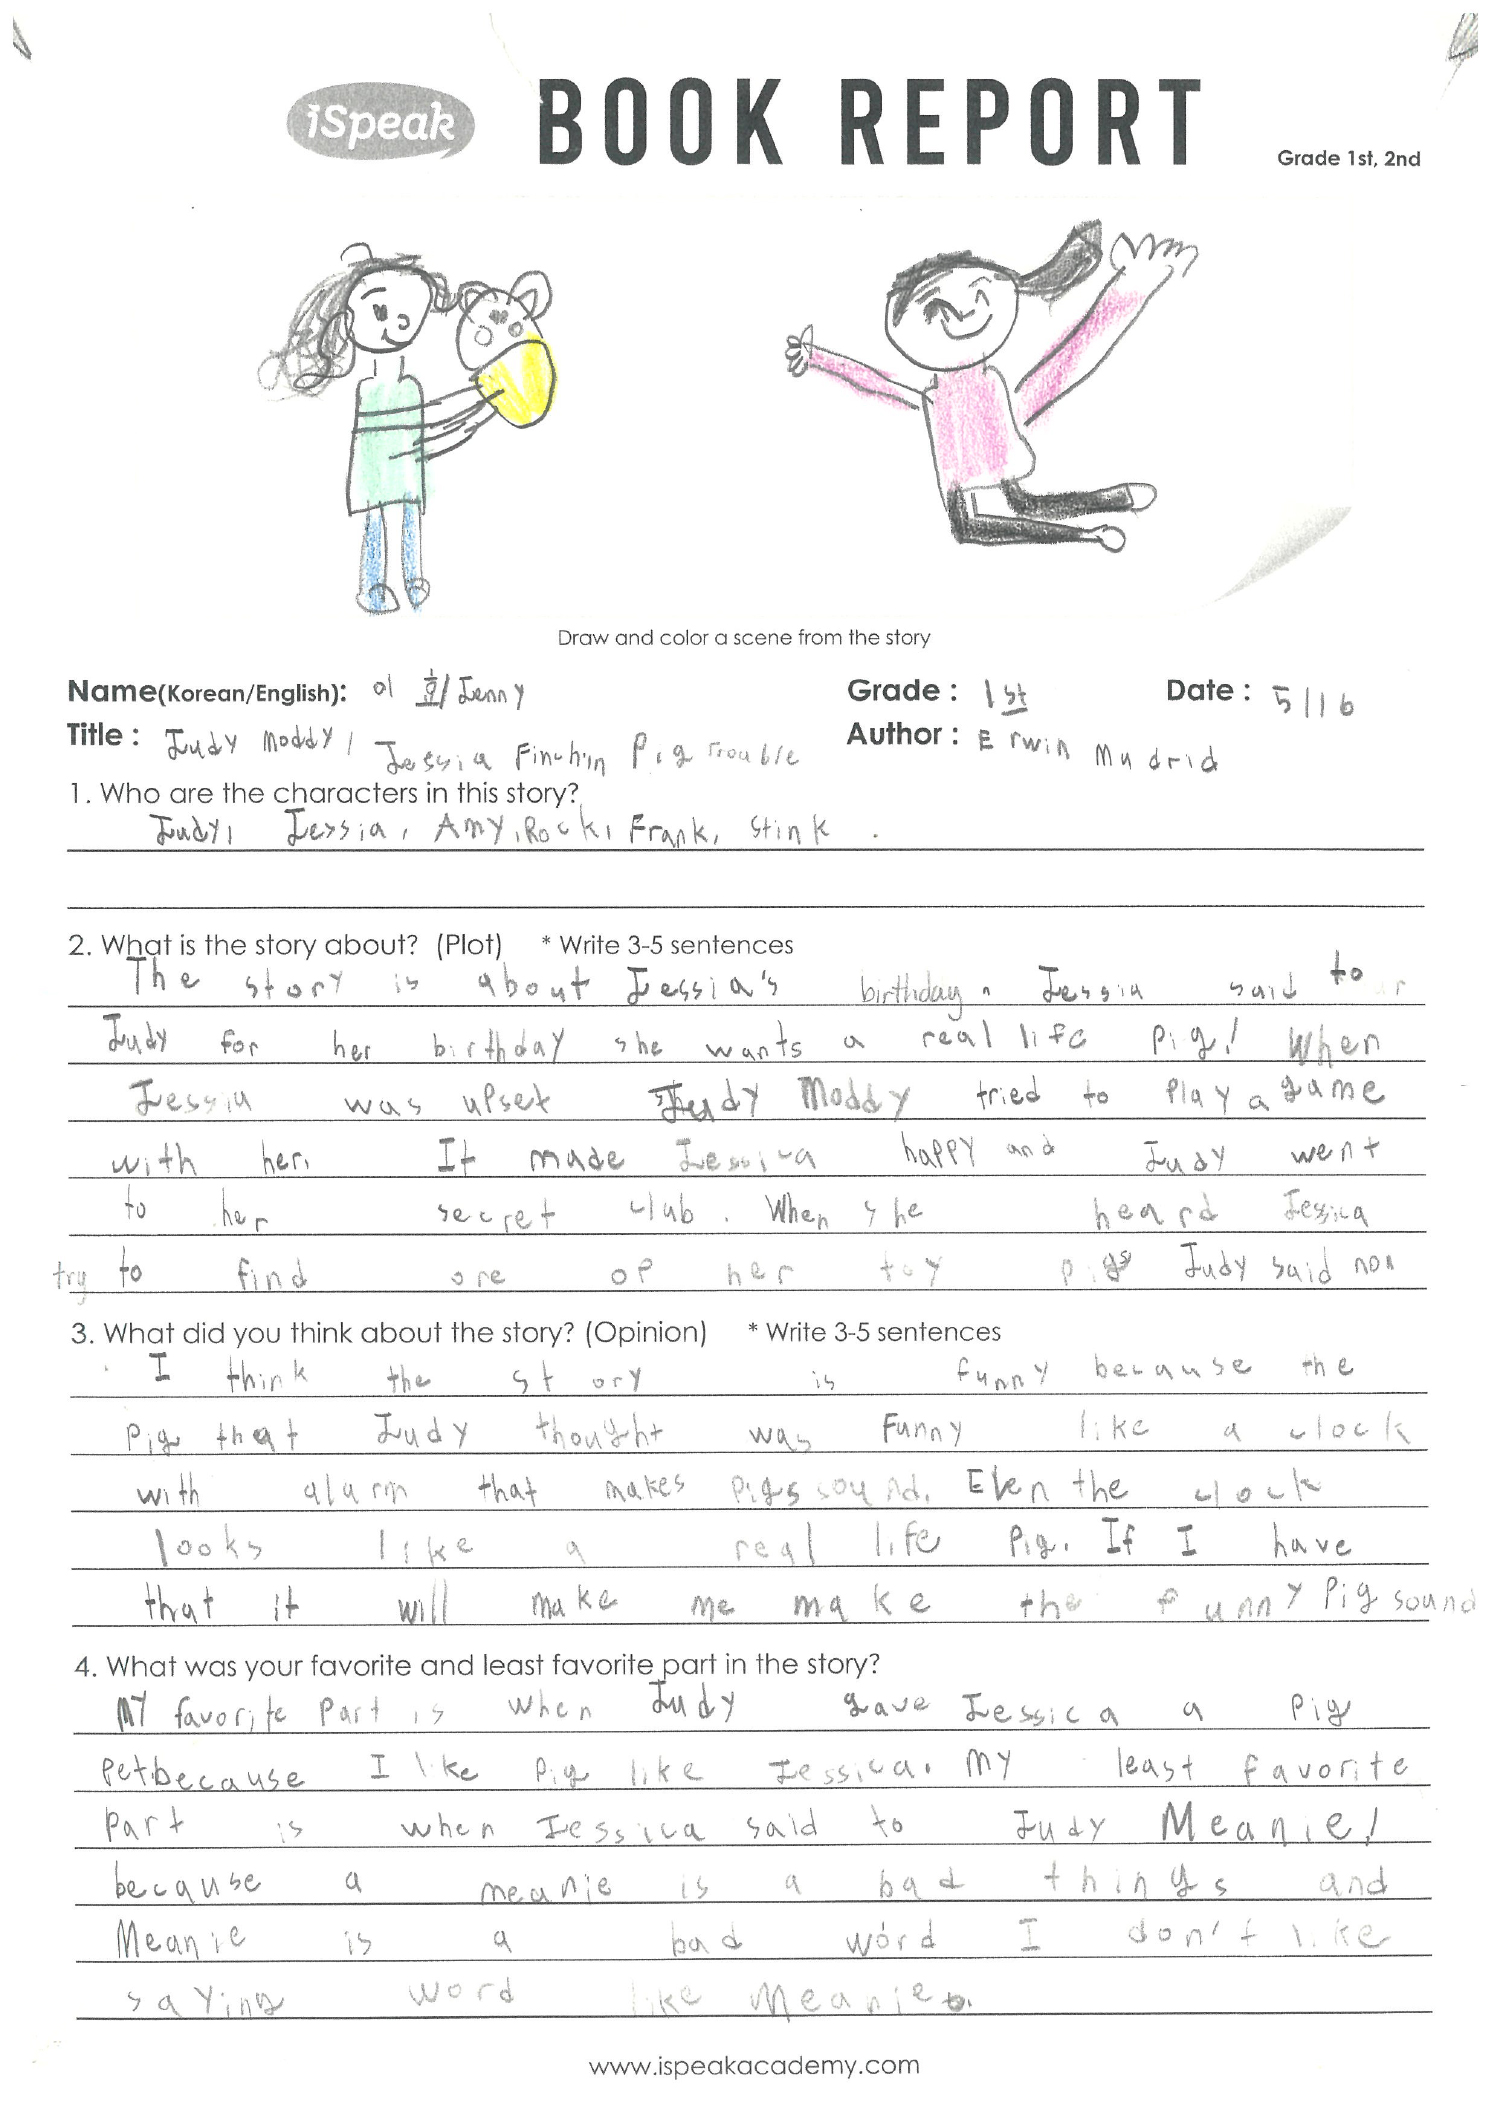 iSpeak BOOK REPORT
Grade 1st, 2nd
Draw and color a scene from the story
Name(Korean/English): 이 회/Jenny Grade : 1st Date : 5/16
Title : Judy Moddy, Jessia Finch in Pig Trouble Author : Erwin Madrid
1. Who are the characters in this story?
Judy, Jessia, Amy, Rock, Frank, Stink .
2. What is the story about? (Plot) * Write 3-5 sentences
The story is about Jessia's birthday. Jessia said to
Judy for her birthday she wants a real life pig! When
Jessia was upset Judy Moddy tried to play a game
with her. It made Jessica happy and Judy went
to her secret club. When she heard Jessica
try to find one of her toy pigs Judy said
3. What did you think about the story? (Opinion) * Write 3-5 sentences
I think the story is funny because the
pig that Judy thought was funny like a clock
with alarm that makes pigs sound. Even the clock
looks like a real life pig. If I have
that it will make me make the funny pig sound
4. What was your favorite and least favorite part in the story?
My favorite part is when Judy gave Jessica a pig
pet. because I like pig like Jessica. My least favorite
part is when Jessica said to Judy Meanie!
because a meanie is a bad things and
Meanie is a bad word I don't like
saying word like Meanie.
www.ispeakacademy.com